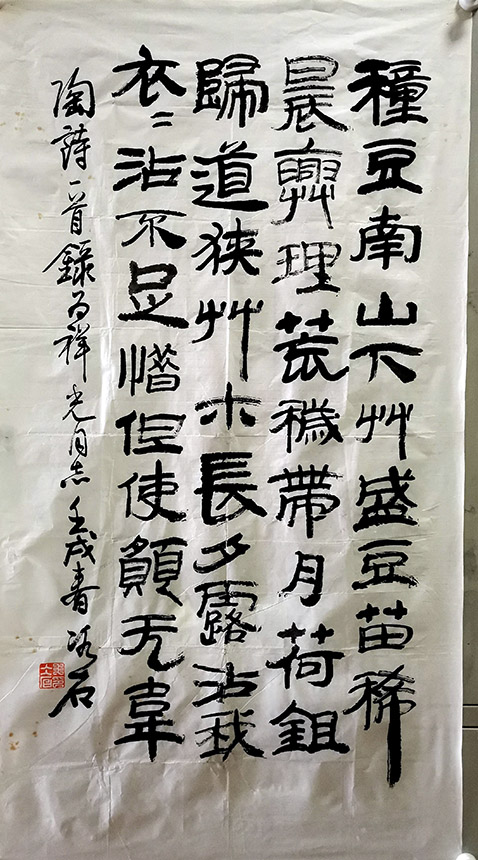 種豆南山下艸盛豆苗稀
晨興理荒穢帶月荷鉏
歸道狹艸木長夕露沾我
衣〻沾不足惜但使願无韋
陶詩一首錄为祥光同志 壬戌春 石